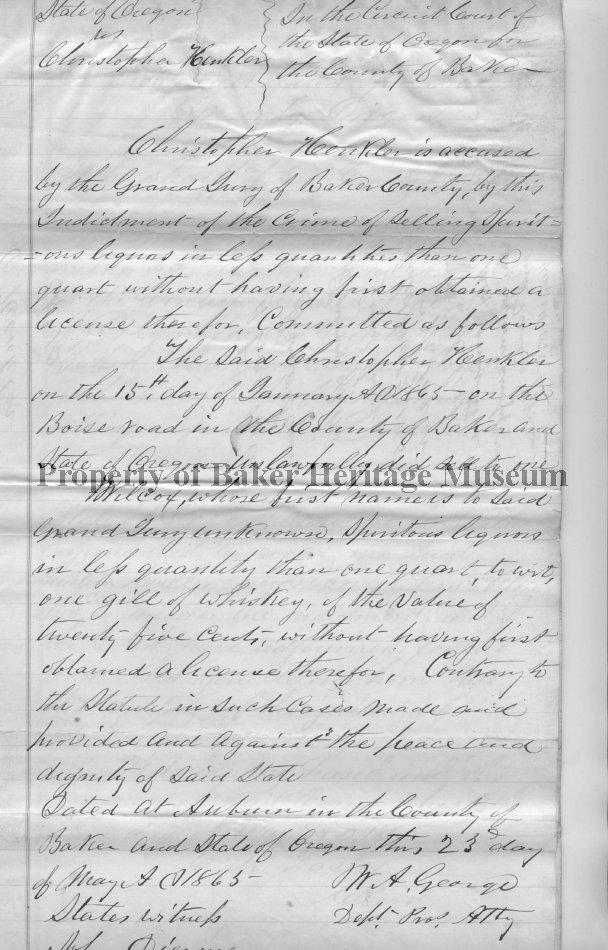 State of Oregon
vs
Christopher Henkler
In the Circuit Court of
the State of Oregon for
the County of Baker
Christopher Henkler is accused
by the Grand Jury of Baker County, by this
Indictment of the Crime of selling spirit=
=ous liquors in less quantities than one
quart without having first obtained a
license therefor, Committed as follows
The said Christopher Henkler
on the 15th day of January A D 1865 on the
Boise road in the County of Baker and
State of Oregon unlawfully did sell to one
Property of Baker Heritage Museum
Wilcox, whose first name is to said
Grand Jury unknown, spiritous liquors
in less quantity than one quart, to wit,
one gill of whiskey, of the value of
twenty five cents, without having first
obtained a license therefor, Contrary to
the Statute in such Cases made and
provided and against the peace and
dignity of said State
Dated at Auburn in the County of
Baker and State of Oregon this 23d day
of May A D 1865
W. A. George
Dept. Pros. Atty
States witness